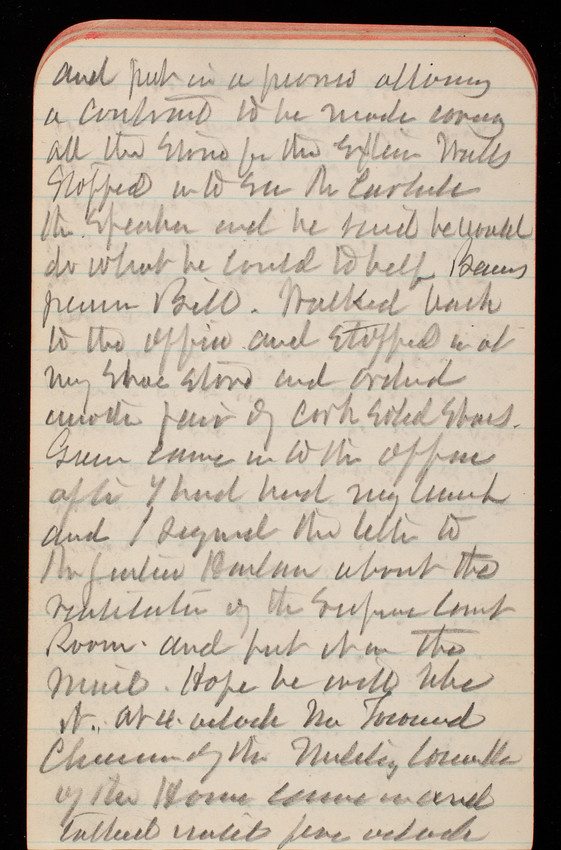 and put in a proviso allowing
a contract to be made covering
all the Stone for the Exterior Walls
Stopped in to see Mr Carlisle
the Speaker and he said he would
do what he could to help
Bill. Walked back
to the office and Stopped in at
my Shoe Store and ordered
another pair of Cork Soled Shoes.
Green came in to the office
after I had had my lunch
and I signed the letter to
Mr Justice Harlan about the
ventilation of the Supreme Court
Room. and put it in the
Mail. Hope he will like
it. At 4 oclock Mr Townsend
Chairman of the Military Committee
of the House came in and
talked until five oclock